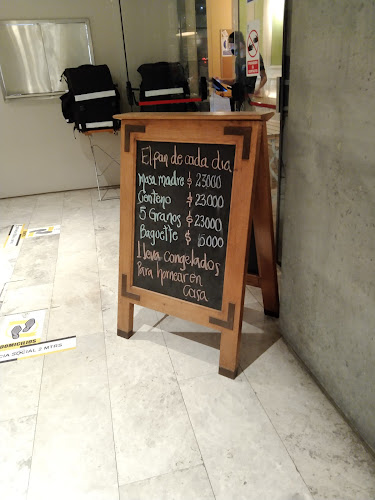 El pan de cada dia
Masa madre $ 23000
Centeno $ 23.000
5 Granos $ 23000
Baguette $ 15000
lleva congelados
Para hornear en
casa
DOMICILIOS
CIA SOCIAL 2 MTRS